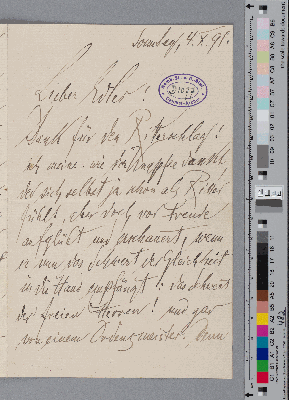 Sonntag, 4. X. 91.
Lieber Adler!
Dank für den Ritterschlag!
ich meine: wie der Knappe dankt,
der sich selbst ja schon als Ritter
fühlt, aber doch vor Freude
aufglüht und erschauert, wenn
er nun das Schwert der Gleichheit
in die Hand empfängt: das Schwert
der freien Herren! und gar
von einem Ordensmeister. Denn